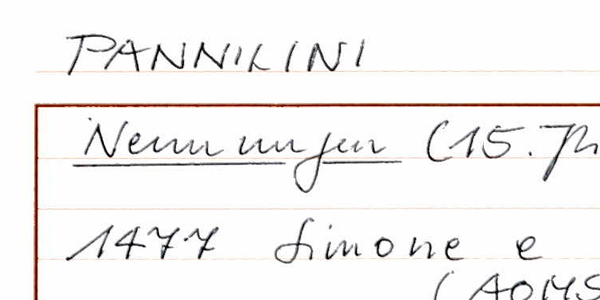 PANNILINI
Nennungen (15. Jh
1477 Simone e
(AOMS